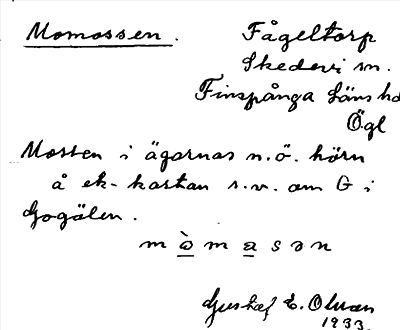 Momossen.
Fågeltorp
Skedevi sn.
Finspånga läns hd
Ögl
Mossen i ägornas n.ö. hörn
å ek-kartan s.v. om G i
Gogölen.
m ò m a s ə n
Gustaf E. Olman
1933.